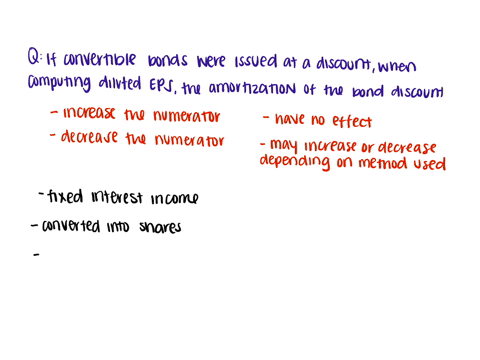 Q: If convertible bonds were issued at a discount, when
computing diluted EPS, the amortization of the bond discount
- increase the numerator
- decrease the numerator
- have no effect
- may increase or decrease
depending on method used
- fixed interest income
- converted into shares
-